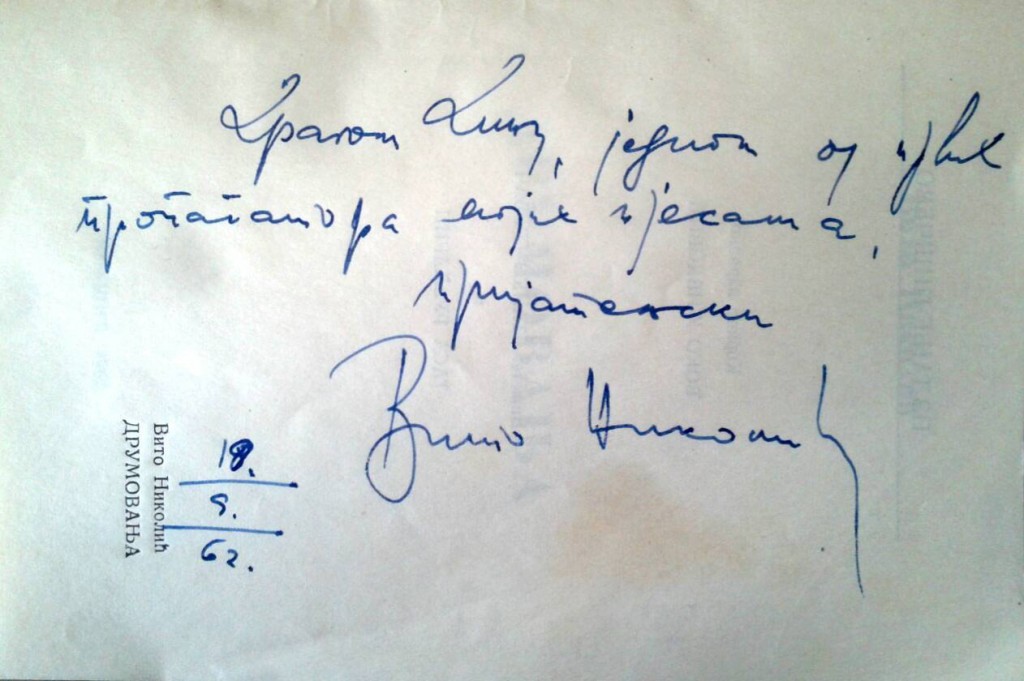 Драгом једном од првих
пропагатора мојих пјесама,
пријатељски
Вито Николић
18.
9.
62.
Вито Николић
ДРУМОВАЊА